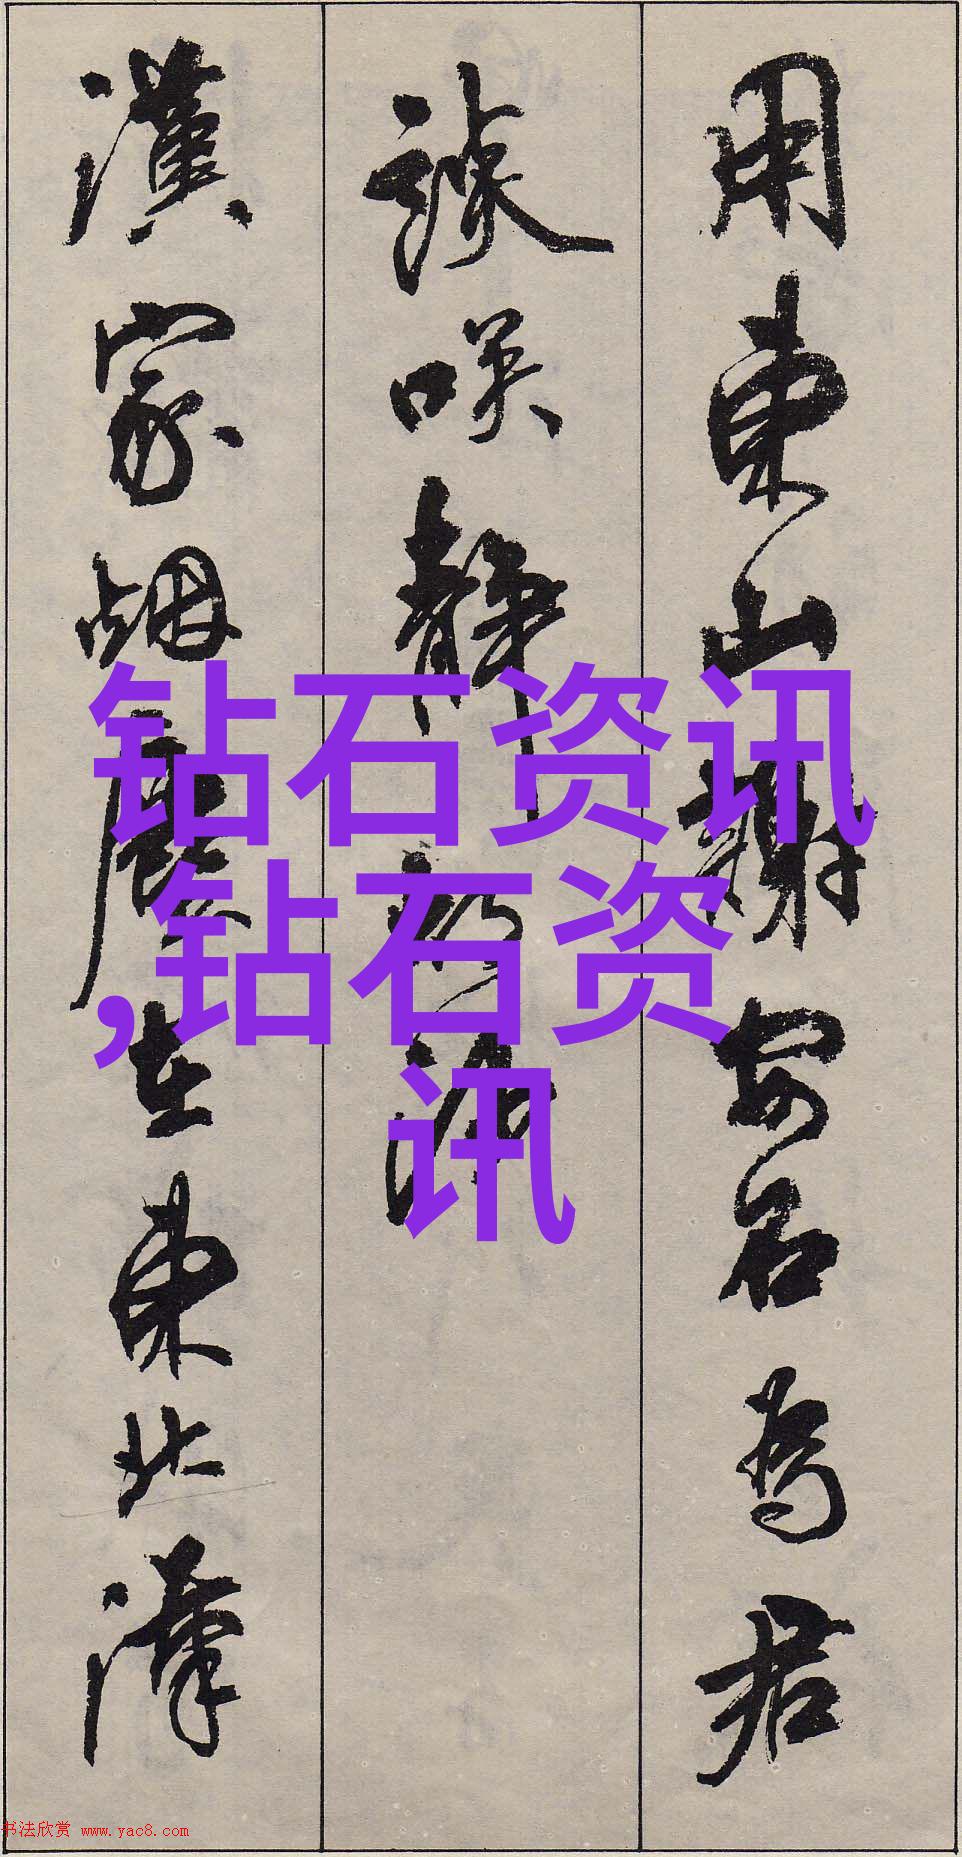 用東山謝安石為君
談咲靜胡沙
漢家烟塵在東北漢
钻石资讯
,钻石资
讯
书法欣赏 www.yac8.com